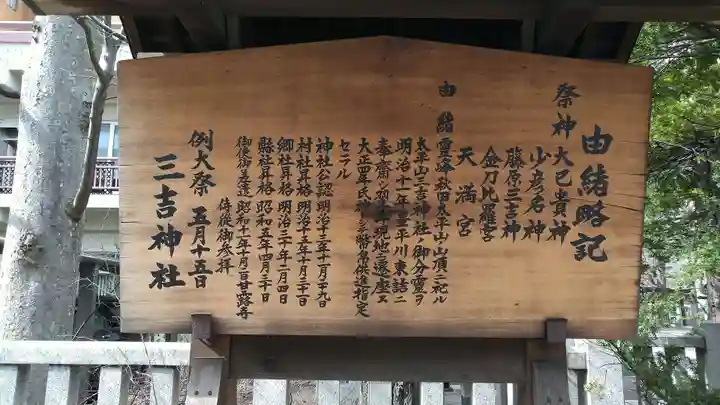 由緒略記
祭神 大己貴神
少彦名神
藤原三吉神
金刀比羅宮
天満宮
由緒 霊峰秋田太平山山頂ニ祀ル
太平山三吉神社ノ御分霊ヲ
明治十一年 平川東詰ニ
奉斎シ 現地ニ遷座ス
大正四年 幣帛供進指定
セラル
神社公認 明治十三年十月十九日
村社昇格 明治十五年十月三十日
郷社昇格 明治三十年二月四日
縣社昇格 昭和五年四月二十日
御使御差遣 昭和十一年十月一日甘露寺
侍従御参拝
例大祭 五月十五日
三吉神社